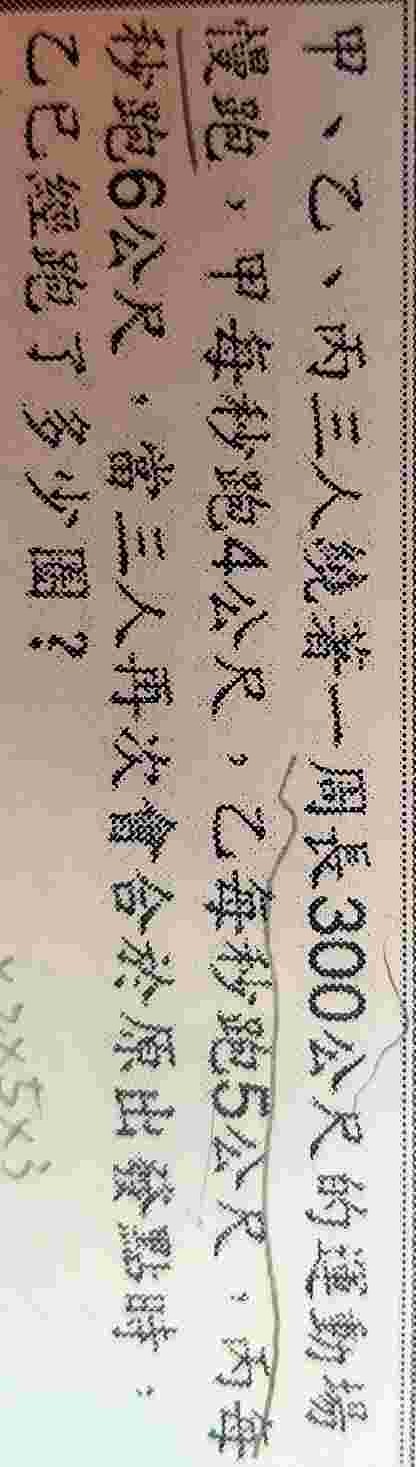 甲、乙、丙三人繞著一周長300公尺的運動場
慢跑，甲每秒跑4公尺，乙每秒跑5公尺，丙每
秒跑6公尺，當三人再次會合於原出發點時，
乙已經跑了多少圈？